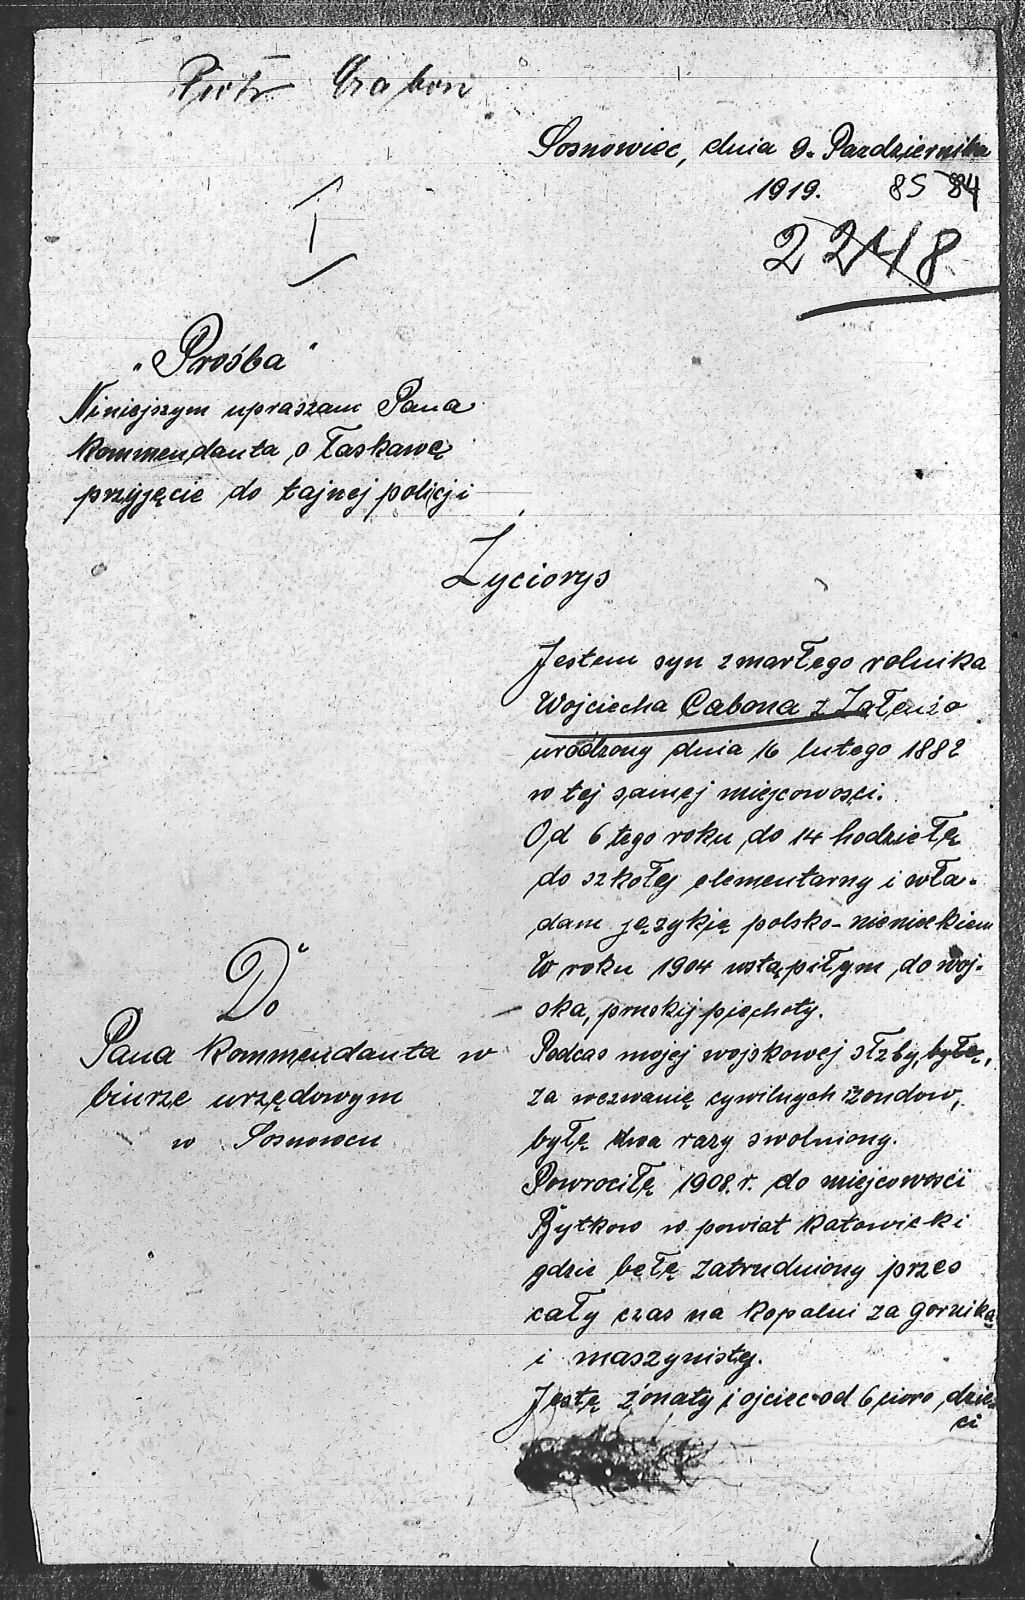 Piotr Crabon
Sosnowiec, dnia 9. Pazdziernika
1919. 85 84
2248
I
„Prośba"
Niniejszym upraszam Pana
Kommendanta o łaskawę
przyjęcie do tajnej policji
Życiorys
Jestem syn zmarłego rolnika
Wojciecha Cabona z Załenża
urodzony dnia 16 lutego 1882
w tej samej miejcowosci.
Od 6 tego roku do 14 hodziełę
do szkołej elementarny i wła-
dam językię polsko-niemiekiem
W roku 1904 wstąpiłym do woj-
ska, pruskij piechoty.
Podcas mojej wojskowej słzby, byłę,
za wezwanię cywilnych rzondow,
byłę dwa razy swolniony.
Powrociłę 1908. r. do miejcowości
Bytkow w powiat Katowicki
gdzie bełę zatrudniony przes
cały czas na kopalni za gornika
i maszynistę.
Jestę żonaty i ojciec od 6 cioro dzie-
ci
Do
Pana Kommendanta w
biurze urzędowym
w Sosnowcu